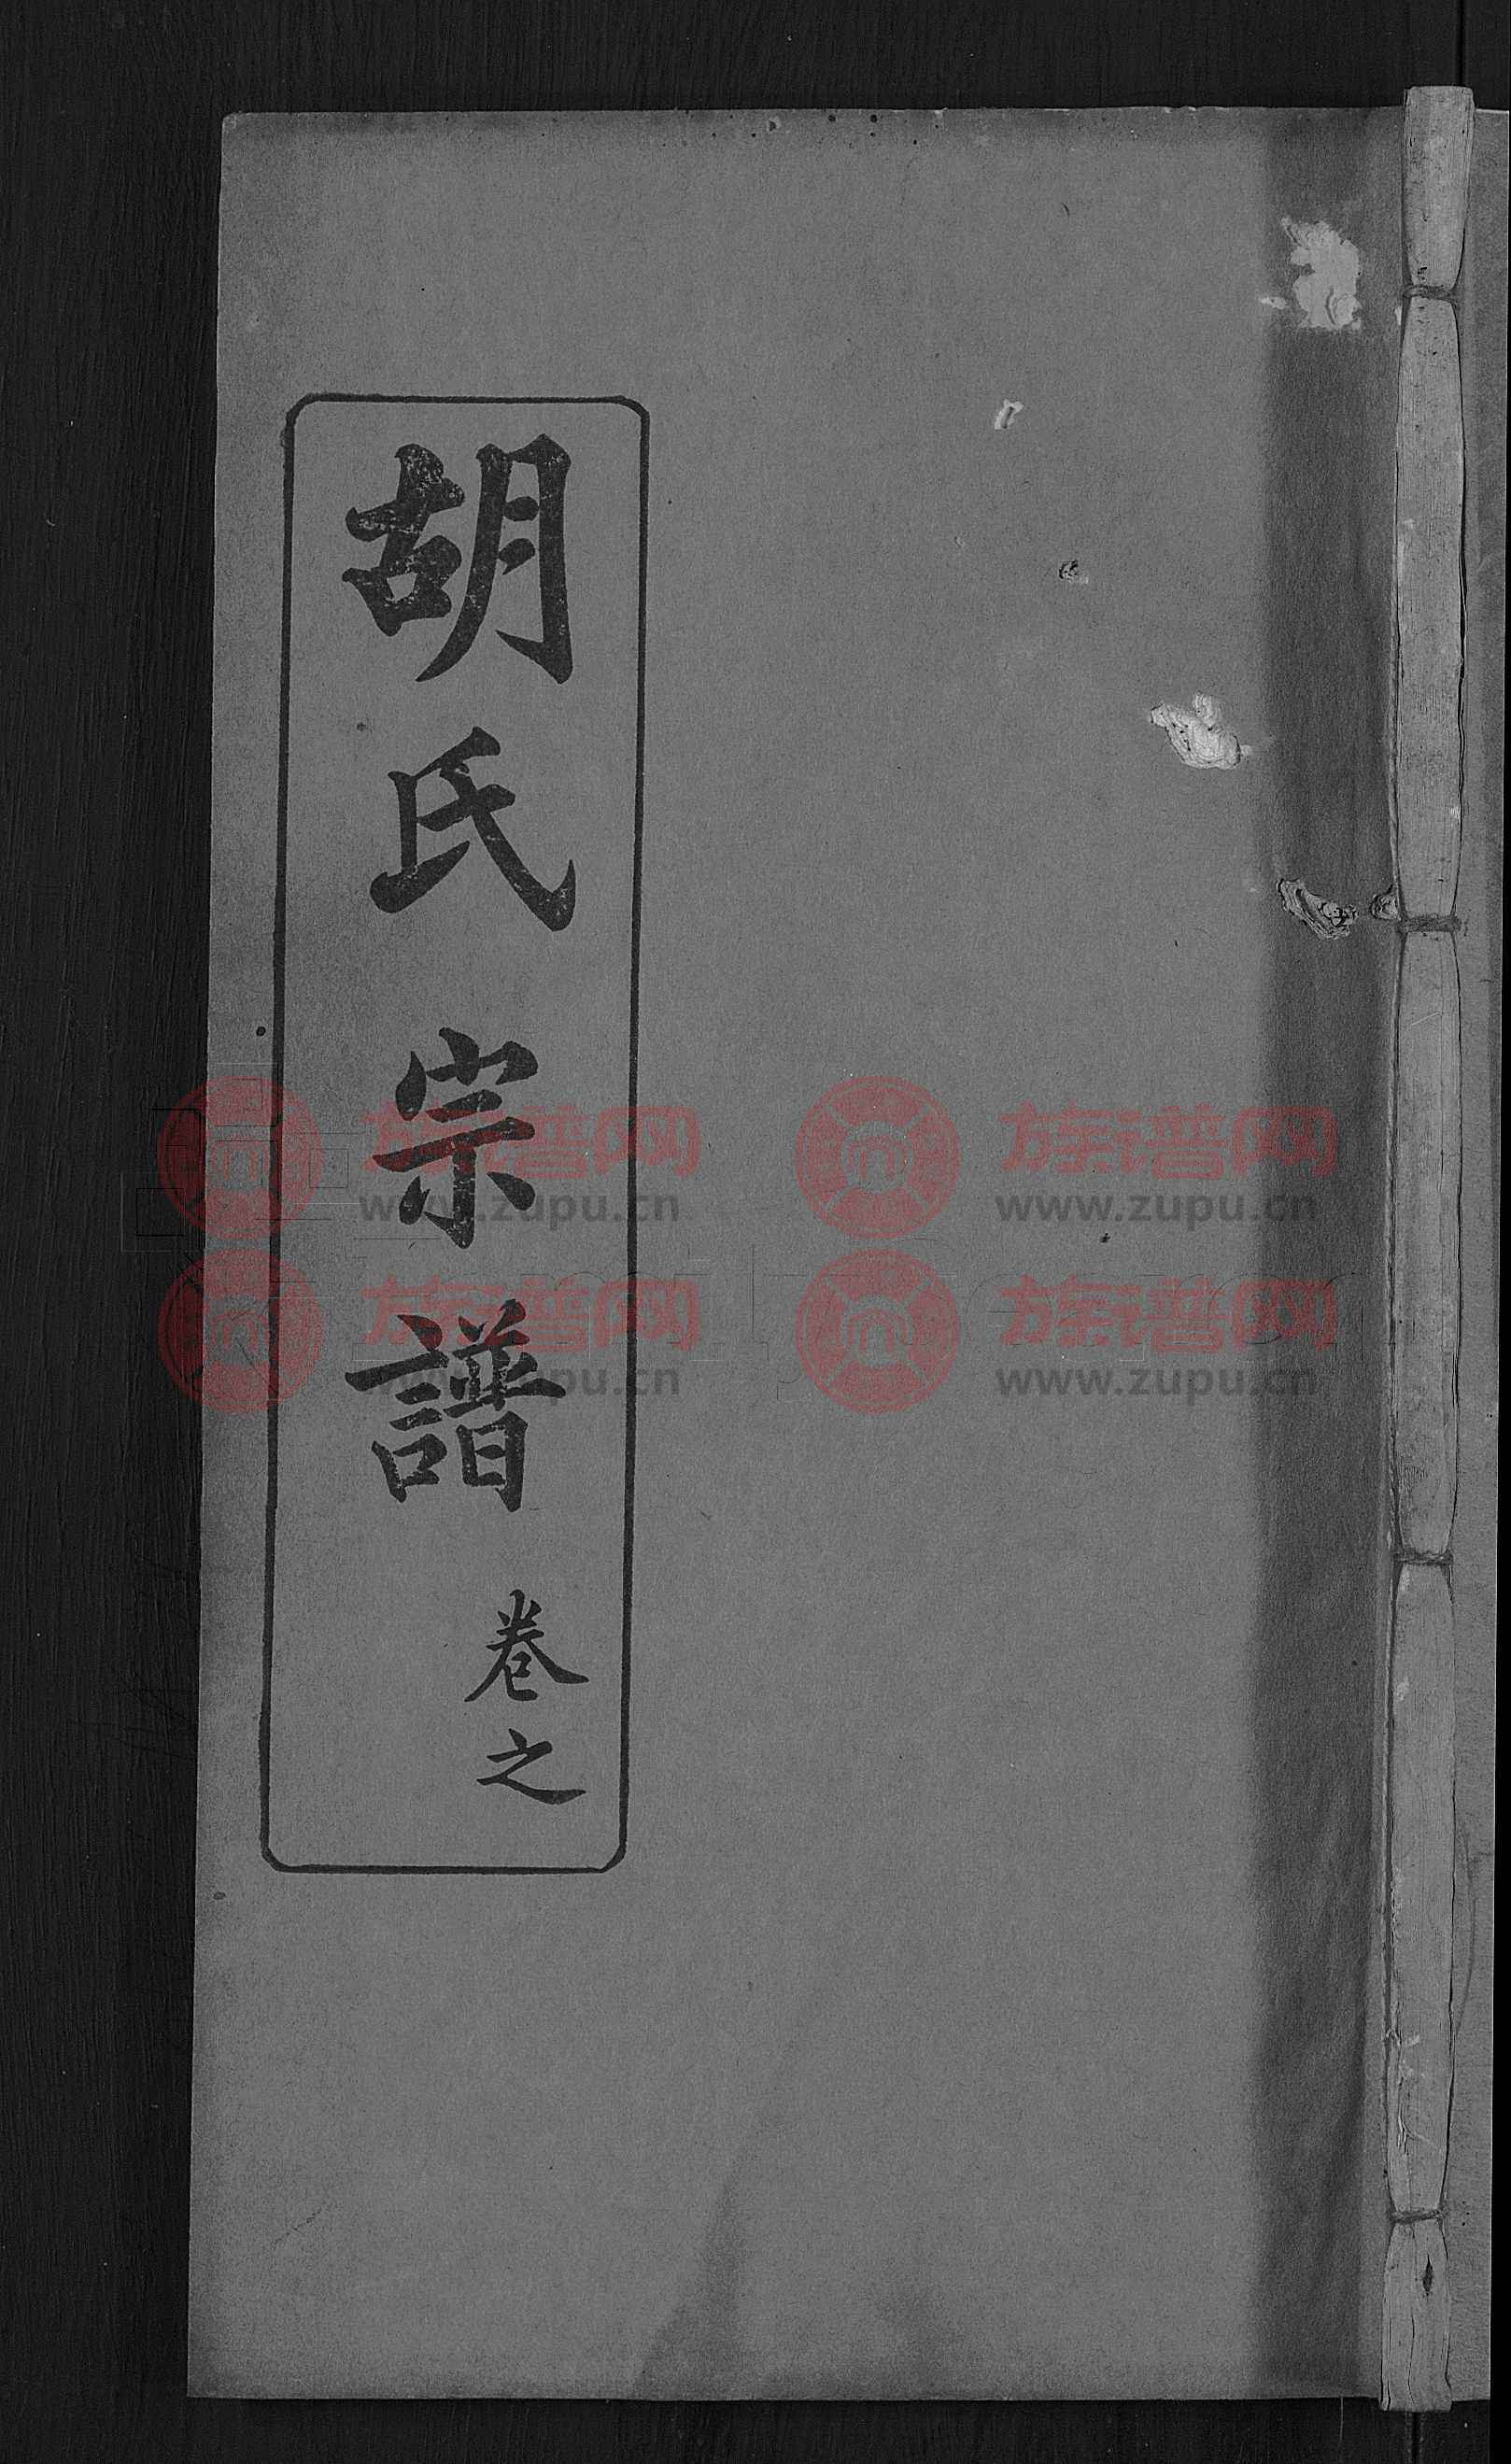 胡氏宗譜
卷之
族谱网
www.zupu.cn
族谱网
www.zupu.cn
族谱网
www.zupu.cn
族谱网
www.zupu.cn